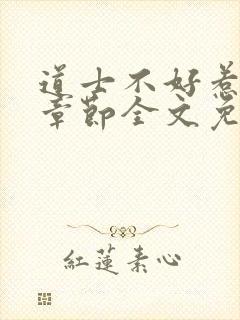 道士不好惹
章節全文免
紅蓮素心